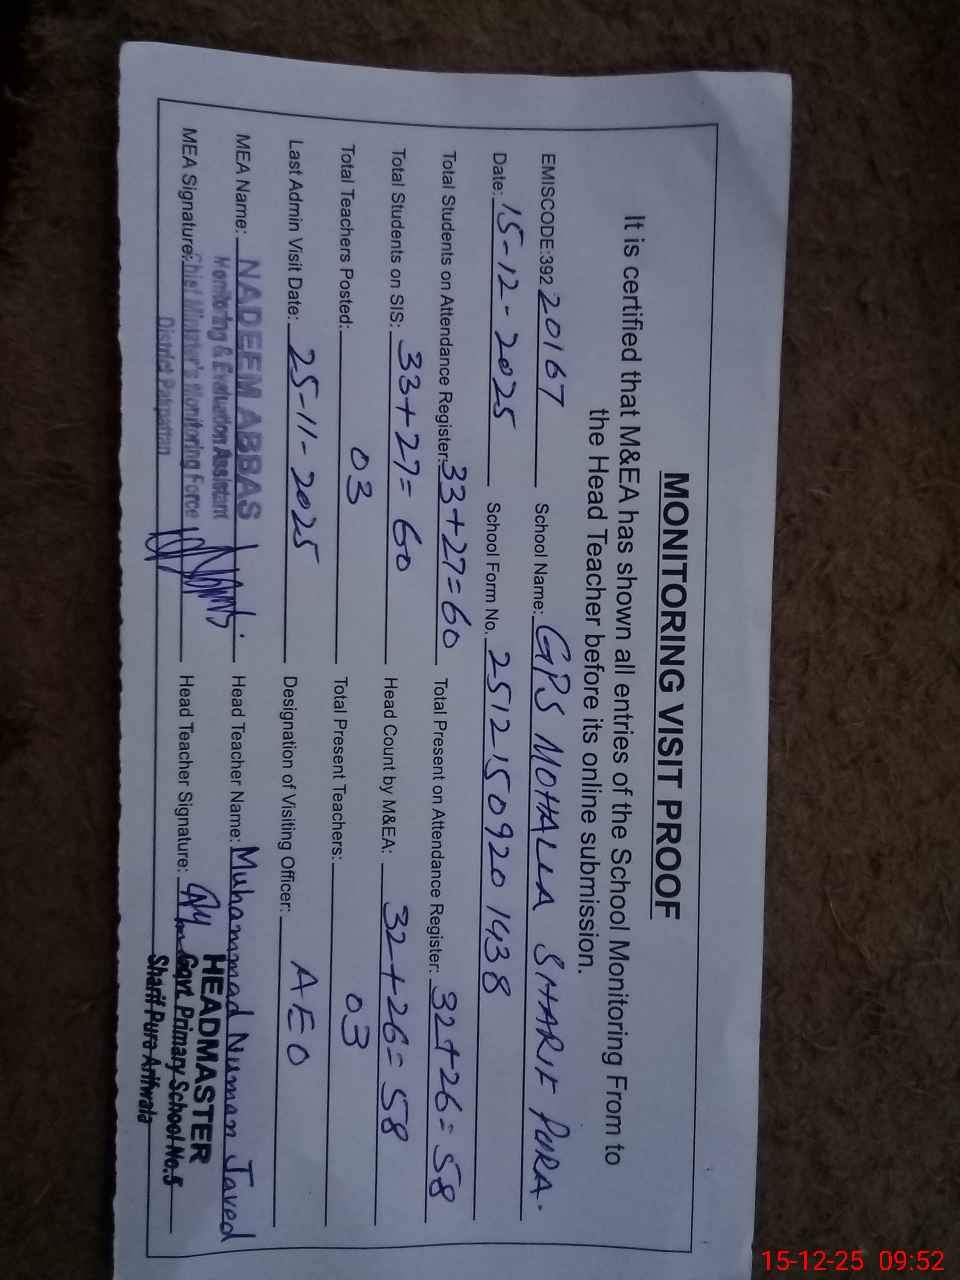 MONITORING VISIT PROOF
It is certified that M&EA has shown all entries of the School Monitoring From to
the Head Teacher before its online submission.
EMISCODE:392 20167 School Name: GPS MOHALLA SHARIF PURA.
Date: 15-12-2025 School Form No. 25121509201438
Total Students on Attendance Register: 33+27=60 Total Present on Attendance Register: 32+26=58
Total Students on SIS: 33+27=60 Head Count by M&EA: 32+26=58
Total Teachers Posted: 03 Total Present Teachers: 03
Last Admin Visit Date: 25-11-2025 Designation of Visiting Officer: AEO
MEA Name: NADEEM ABBAS Head Teacher Name: Muhammad Numan Javed
Monitoring & Evaluation Assistant
MEA Signature: Chief Minister's Monitoring Force Head Teacher Signature:
District Pakpattan
HEADMASTER
Govt. Primary School No.5
Sharif Pura Arifwala
15-12-25 09:52